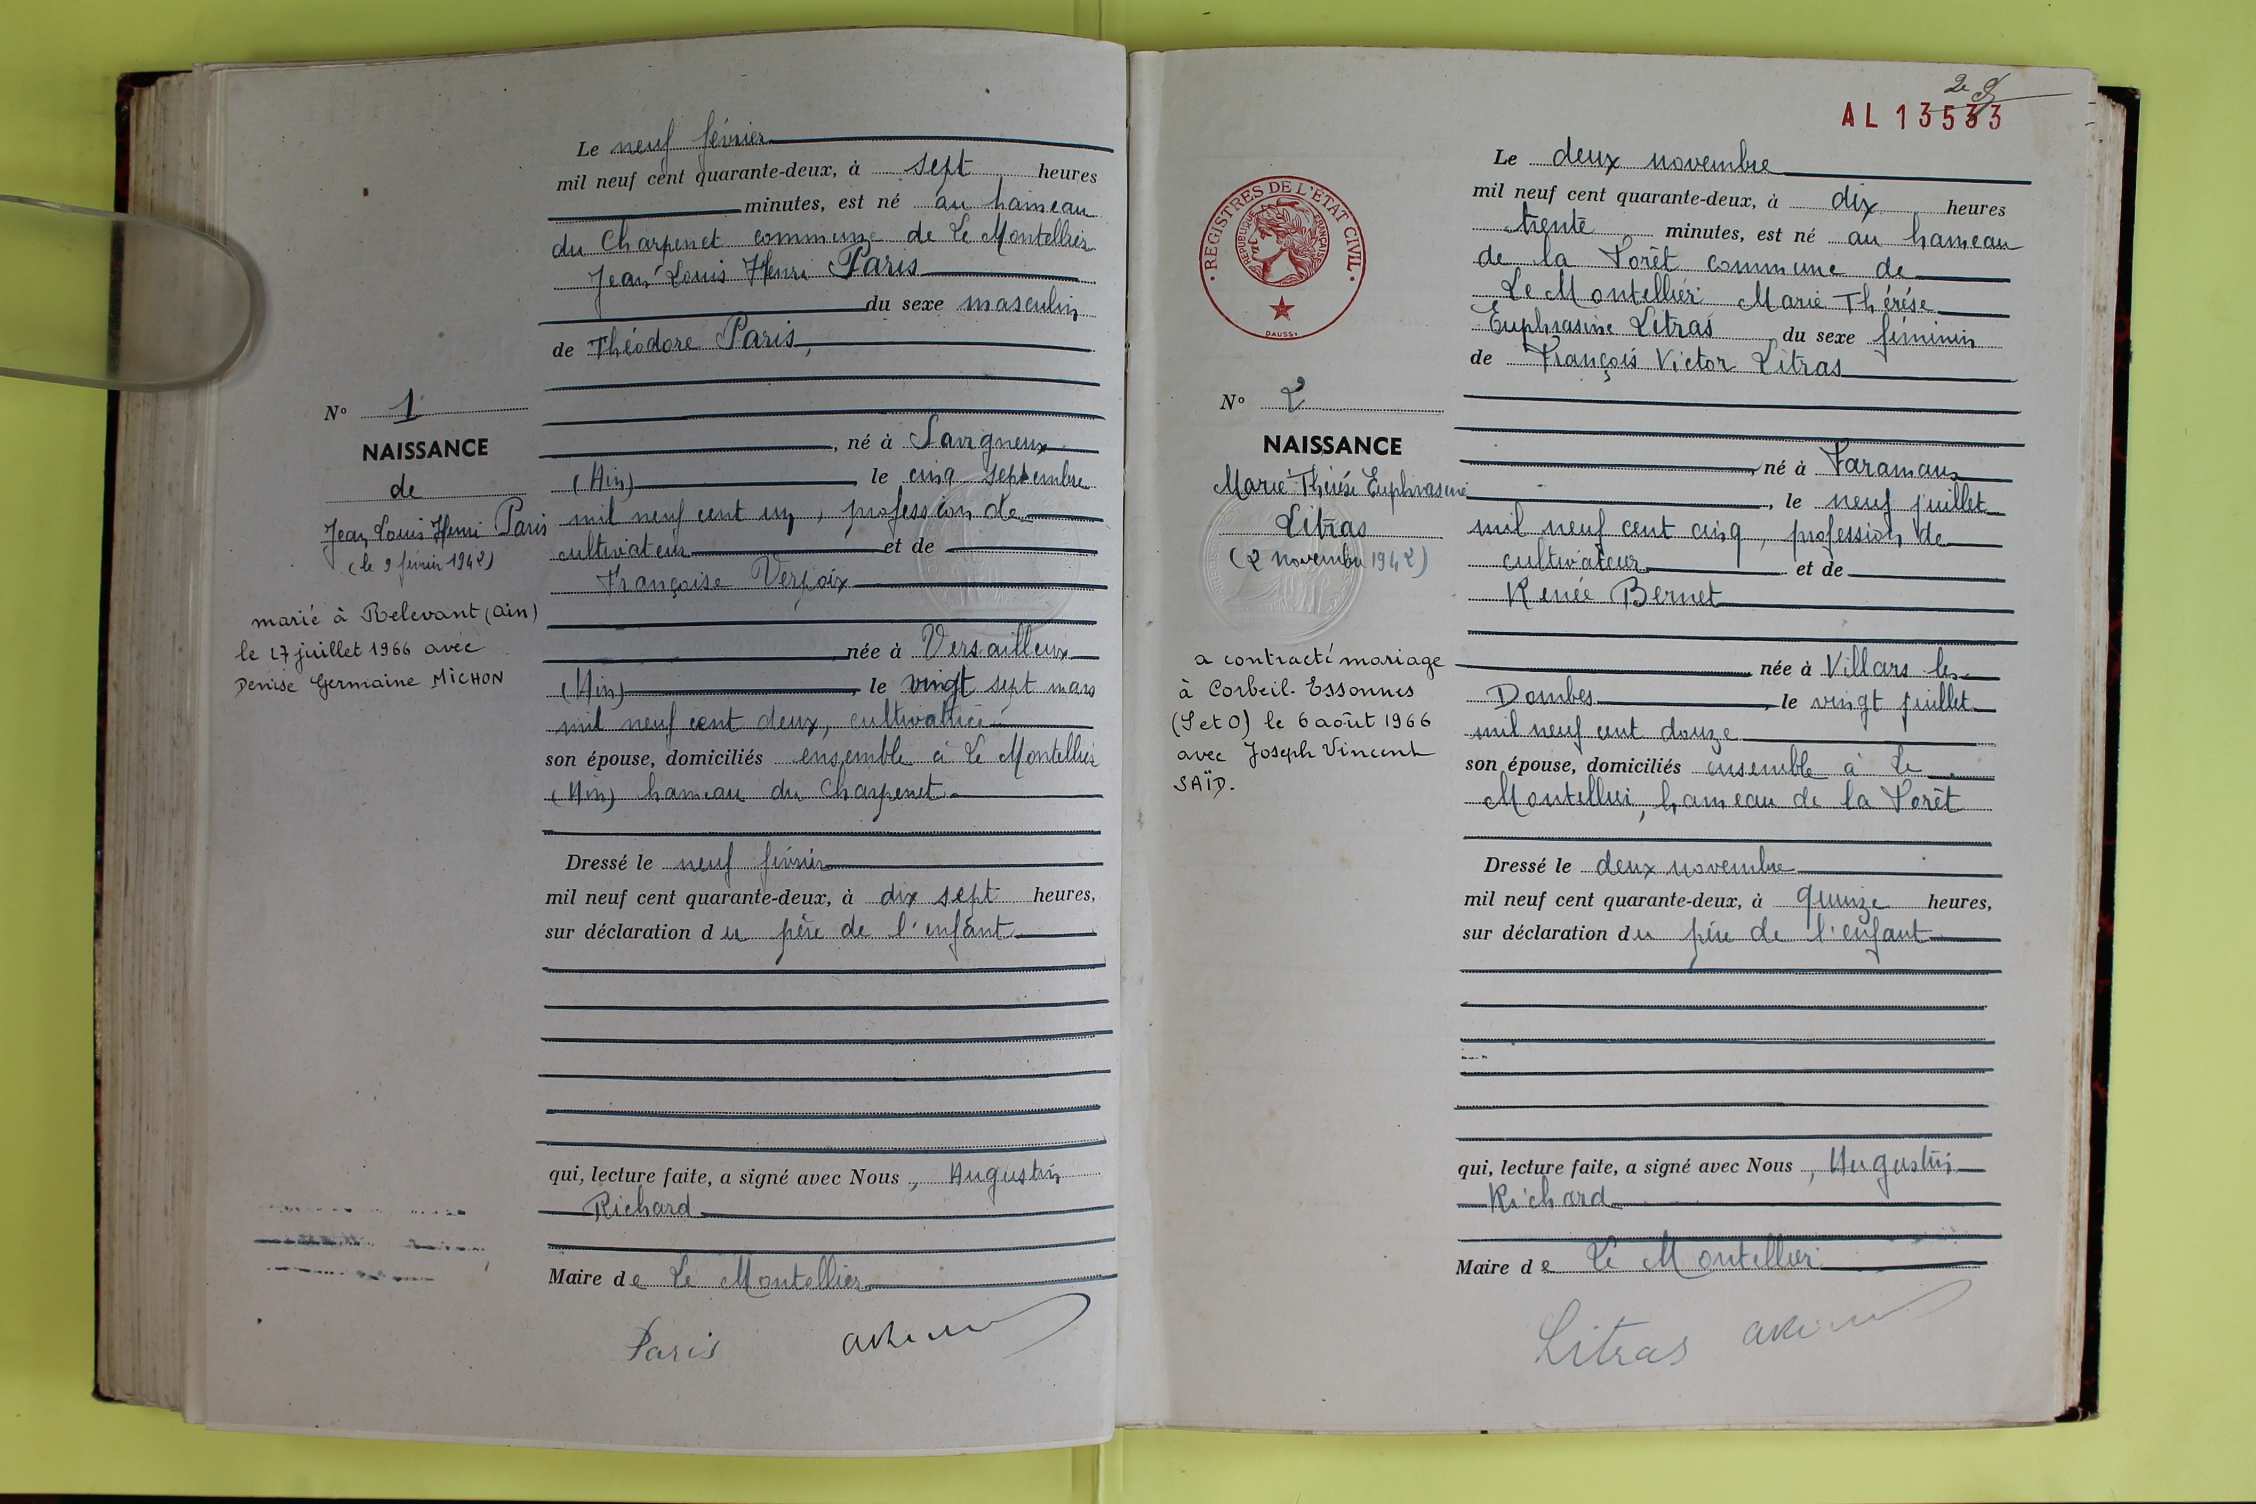 Le neuf février
mil neuf cent quarante-deux, à sept heures
minutes, est né au hameau
du Charpenet commune de Le Montellier
Jean Louis Henri Paris
du sexe masculin
de Théodore Paris,
, né à Savigneux
(Ain) le cinq septembre
mil neuf cent un, profession de
cultivateur et de
Françoise Verpoix
née à Versailleux
(Ain), le vingt sept mars
mil neuf cent deux, cultivatrice
son épouse, domiciliés ensemble à Le Montellier
(Ain) hameau du Charpenet
Dressé le neuf février
mil neuf cent quarante-deux, à dix sept heures,
sur déclaration du père de l'enfant
qui, lecture faite, a signé avec Nous, Augustin
Richard
Maire de Le Montellier
Paris
N° 1
NAISSANCE
de
Jean Louis Henri Paris
(le 9 février 1942)
marié à Relevant (ain)
le 17 juillet 1966 avec
Denise Germaine MICHON
AL 13533
REGISTRES DE L'ETAT CIVIL
REPUBLIQUE FRANÇAISE
DAUSSY
N° 2
NAISSANCE
Marie Thérése Euphrasine
Litras
(2 novembre 1942)
a contracté mariage
à Corbeil-Essonnes
(S et O) le 6 août 1966
avec Joseph Vincent
SAÏD.
Le deux novembre
mil neuf cent quarante-deux, à dix heures
trente minutes, est né au hameau
de la Forêt commune de
Le Montellier Marie Thérése
Euphrasine Litras du sexe féminin
de François Victor Litras
né à Faramans
, le neuf juillet
mil neuf cent cinq, profession de
cultivateur et de
Renée Bernet
née à Villars les
Dombes, le vingt juillet
mil neuf cent douze
son épouse, domiciliés ensemble à Le
Montellier, hameau de la Forêt
Dressé le deux novembre
mil neuf cent quarante-deux, à quinze heures,
sur déclaration du père de l'enfant
qui, lecture faite, a signé avec Nous, Augustin
Richard
Maire de Le Montellier
Litras